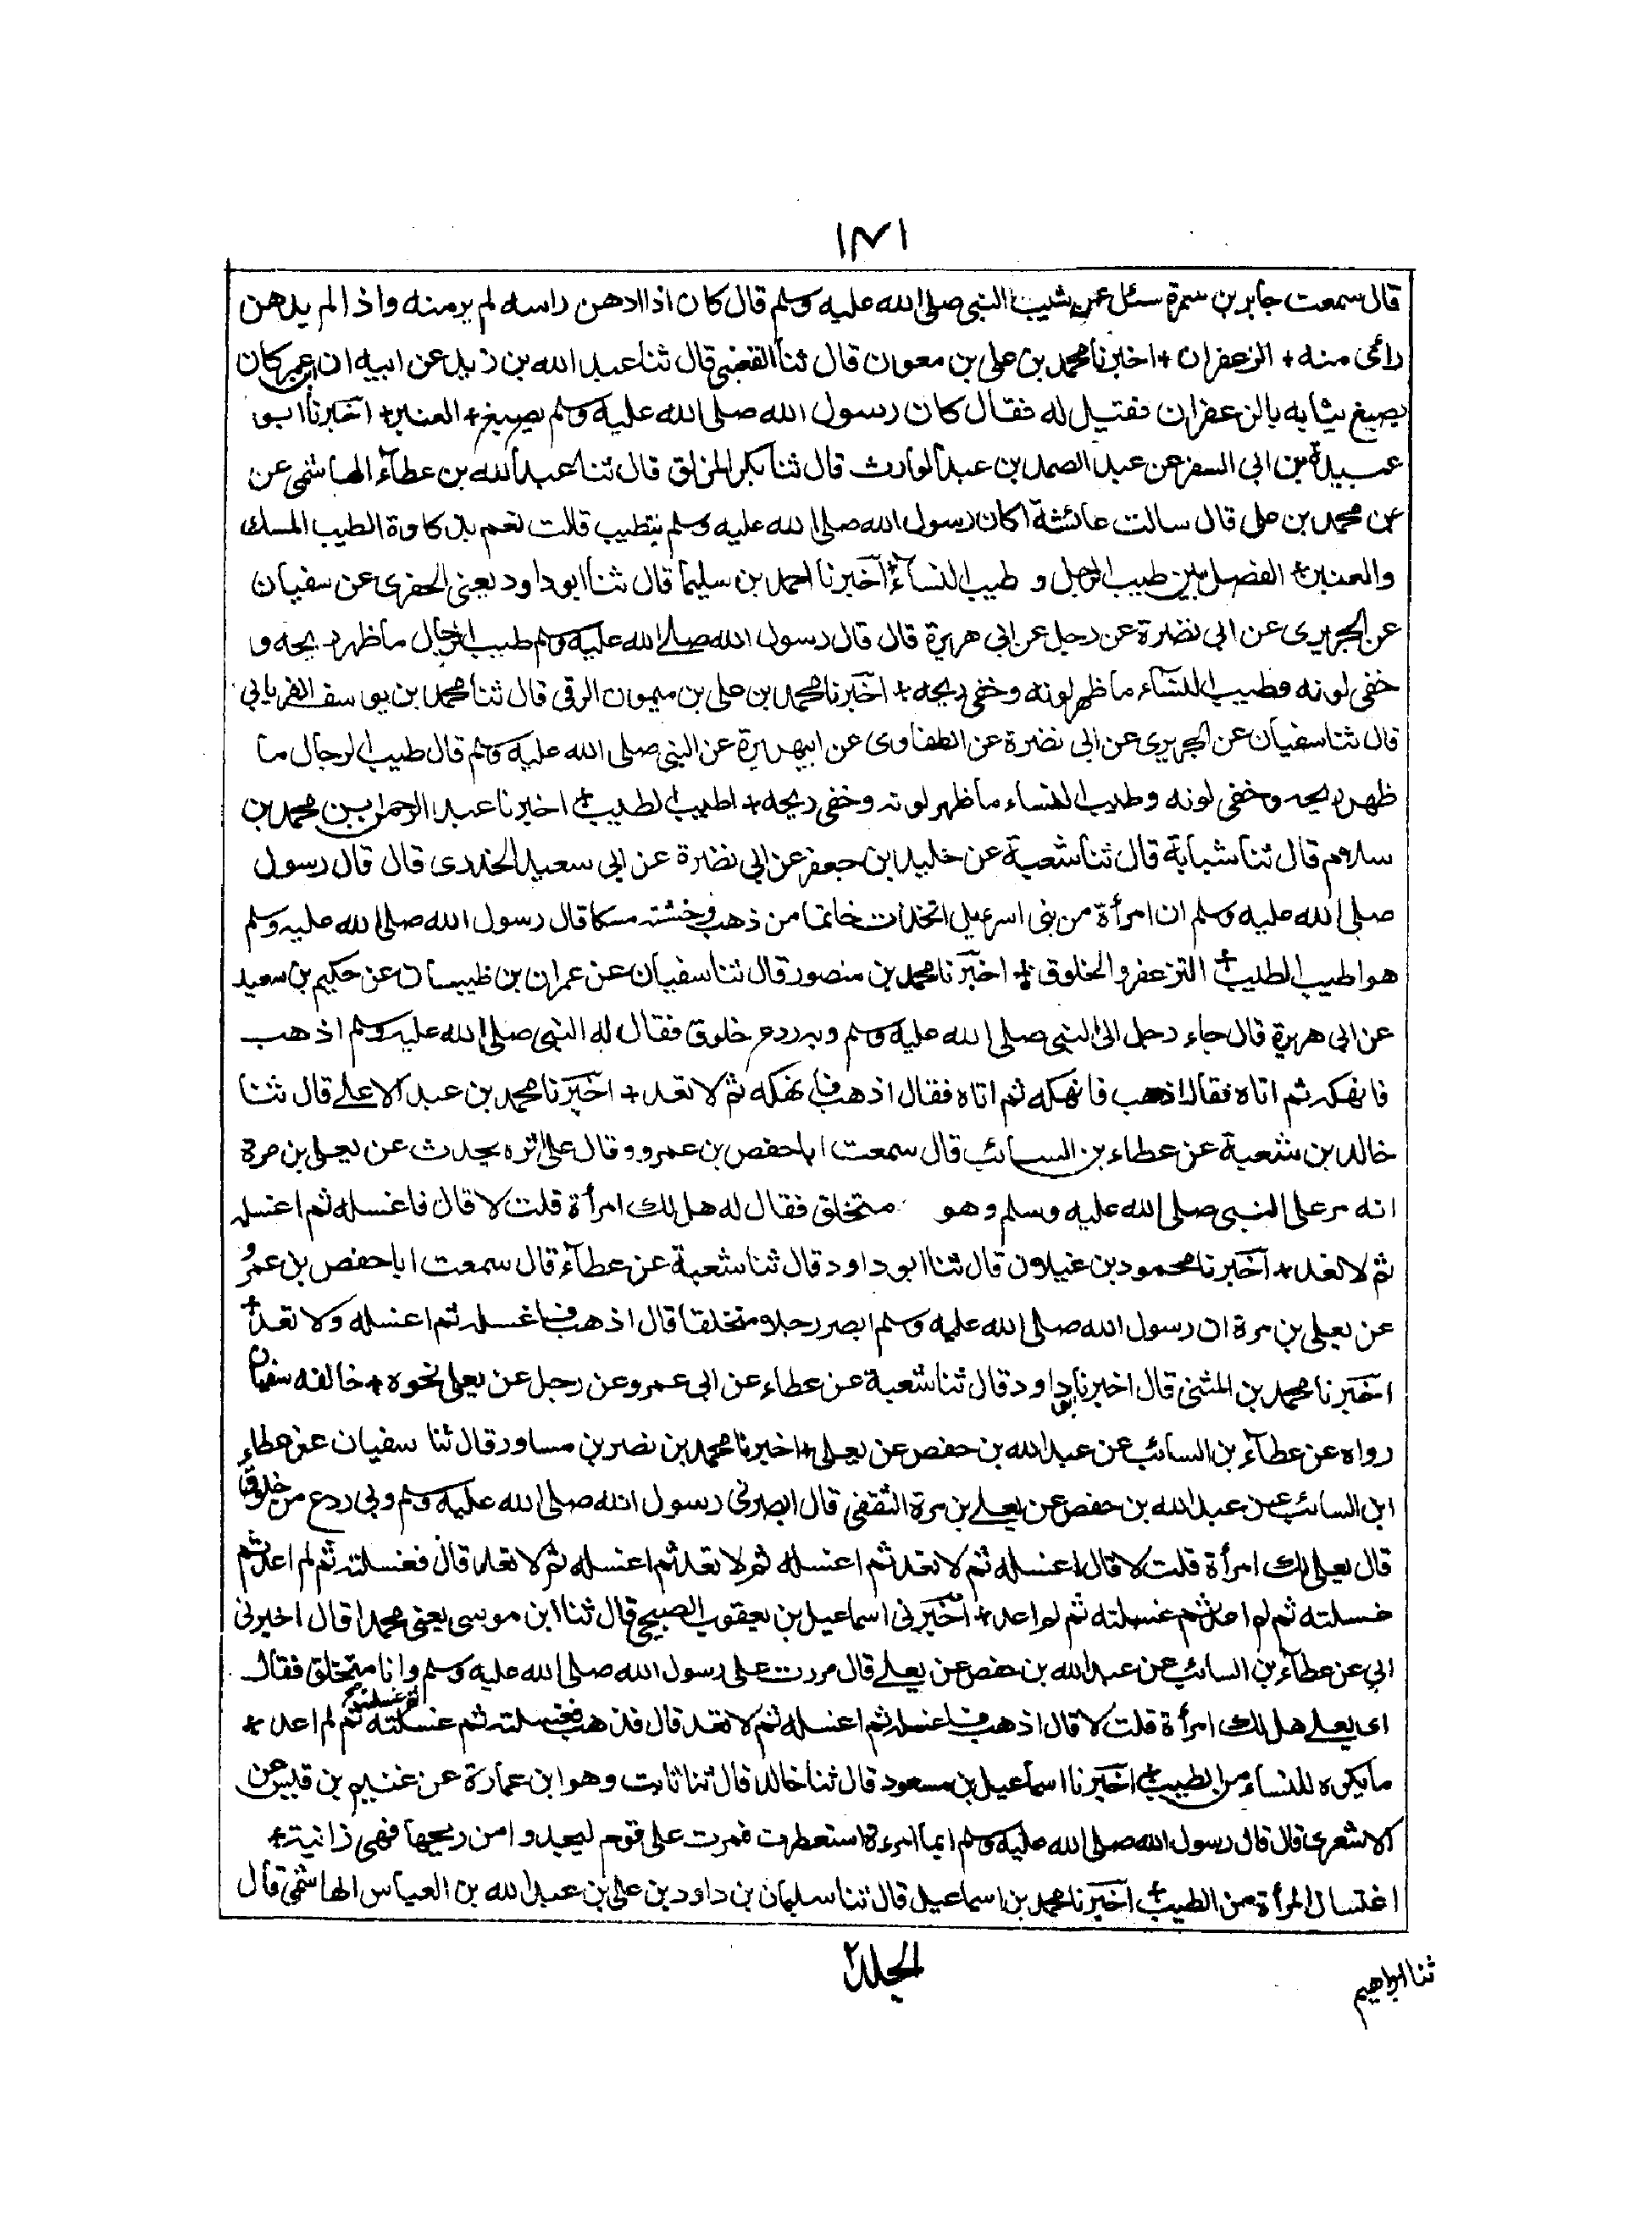 ١٧١
قال سمعت جابر بن سمرة سئل عن شيب النبى صلى الله عليه وسلم قال كان اذا ادهن راسه لم ير منه واذا لم يدهن
رائى منه + الزعفران + اخبرنا محمد بن على بن معون قال ثنا القعنبى قال ثنا عبد الله بن زيد عن ابيه ان ابن عمر كان
يصبغ ثيابه بالزعفران فقيل له فقال كان رسول الله صلى الله عليه وسلم يصبغ + العنبر + اخبرنا ابو
عبيدة بن ابى السفر عن عبد الصمد بن عبد الوارث قال ثنا بكر المزلق قال ثنا عبد الله بن عطاء الهاشمى عن
عن محمد بن على قال سالت عائشة اكان رسول الله صلى الله عليه وسلم يتطيب قالت نعم بذكاوة الطيب المسك
والعنبر + الفصل بين طيب الرجل و طيب النساء + اخبرنا احمد بن سليما قال ثنا ابو داود يعنى الحفرى عن سفيان
عن الجريرى عن ابى نضرة عن رجل عن ابى هريرة قال قال رسول الله صلى الله عليه وسلم طيب الرجال ما ظهر ريحه و
خفى لونه وطيب النساء ما ظهر لونه وخفى ريحه + اخبرنا محمد بن على بن ميمون الرقى قال ثنا محمد بن يوسف الفريابى
قال ثنا سفيان عن الجريرى عن ابى نضرة عن الطفاوى عن ابيهريرة عن النبى صلى الله عليه وسلم قال طيب الرجال ما
ظهر ريحه وخفى لونه وطيب النساء ما ظهر لونه وخفى ريحه + اطيب الطيب + اخبرنا عبد الرحمن بن محمد بن
سلام قال ثنا شبابة قال ثنا شعبة عن خليد ابن جعفر عن ابى نضرة عن ابى سعيد الخدرى قال قال رسول
صلى الله عليه وسلم ان امرأة من بنى اسرعيل اتخذت خاتما من ذهب وخشته مسكا قال رسول الله صلى الله عليه وسلم
هو اطيب الطيب + التزعفر والخلوق + اخبرنا محمد بن منصور قال ثنا سفيان عن عمران بن ظبيان عن حكيم بن سعيد
عن ابى هريرة قال جاء رجل الى النبى صلى الله عليه وسلم وبه ردع خلوق فقال له النبى صلى الله عليه وسلم اذهب
فانهكه ثم اتاه فقال اذهب فانهكه ثم اتاه فقال اذهب فانهكه ثم لا تعد + اخبرنا محمد بن عبد الاعلى قال ثنا
خالد بن شعبة عن عطاء بن السائب قال سمعت ابا حفص بن عمرو وقال على اثره يحدث عن يعلى بن مرة
انه مر على النبى صلى الله عليه وسلم وهو متخلق فقال له هل لك امرأة قلت لا قال فاغسله ثم اغسله
ثم لا تعد + اخبرنا محمود بن غيلان قال ثنا ابو داود قال ثنا شعبة عن عطاء قال سمعت ابا حفص بن عمرو
عن يعلى بن مرة ان رسول الله صلى الله عليه وسلم ابصر رجلا متخلقا قال اذهب فاغسله ثم اغسله ولا تعد +
اخبرنا محمد بن المثنى قال اخبرنا ابو داود قال ثنا شعبة عن عطاء عن ابى عمرو عن رجل عن يعلى نحوه + خالفه سفيان
رواه عن عطاء بن السائب عن عبد الله بن حفص عن يعلى + اخبرنا محمد بن نضر بن مساور قال ثنا سفيان عن عطاء
ابن السائب عن عبد الله بن حفص عن يعلى بن مرة الثقفى قال ابصرنى رسول الله صلى الله عليه وسلم وبى ردع من خلوق
قال يعلى لك امرأة قلت لا قال اغسله ثم لا تعد ثم اغسله ثم لا تعد ثم اغسله ثم لا تعد قال فغسلته ثم لم اعد ثم
غسلته ثم لم اعد ثم غسلته ثم لم اعد + اخبرنى اسماعيل بن يعقوب الصبيحى قال ثنا ابن موسى يعنى محمدا قال اخبرنى
ابى عن عطاء بن السائب عن عبد الله بن حفص عن يعلى قال مررت على رسول الله صلى الله عليه وسلم وانا متخلق فقال
اى يعلى هل لك امرأة قلت لا قال اذهب فاغسله ثم اغسله ثم لا تعد قال فذهبت فغسلته ثم غسلته ثم غسلته ثم لم اعد +
ما يكره للنساء من الطيب + اخبرنا اسماعيل بن مسعود قال ثنا خالد قال ثنا ثابت وهو ابن عمارة عن غنيم بن قيس عن
الاشعرى قال قال رسول الله صلى الله عليه وسلم ايما امرءة استعطرت فمرت على قوم ليجدوا من ريحها فهى زانية +
اغتسال المرأة من الطيب + اخبرنا محمد بن اسماعيل قال ثنا سليمان بن داود بن على بن عبد الله بن العباس الهاشمى قال
ثنا ابراهيم
الجلد٢